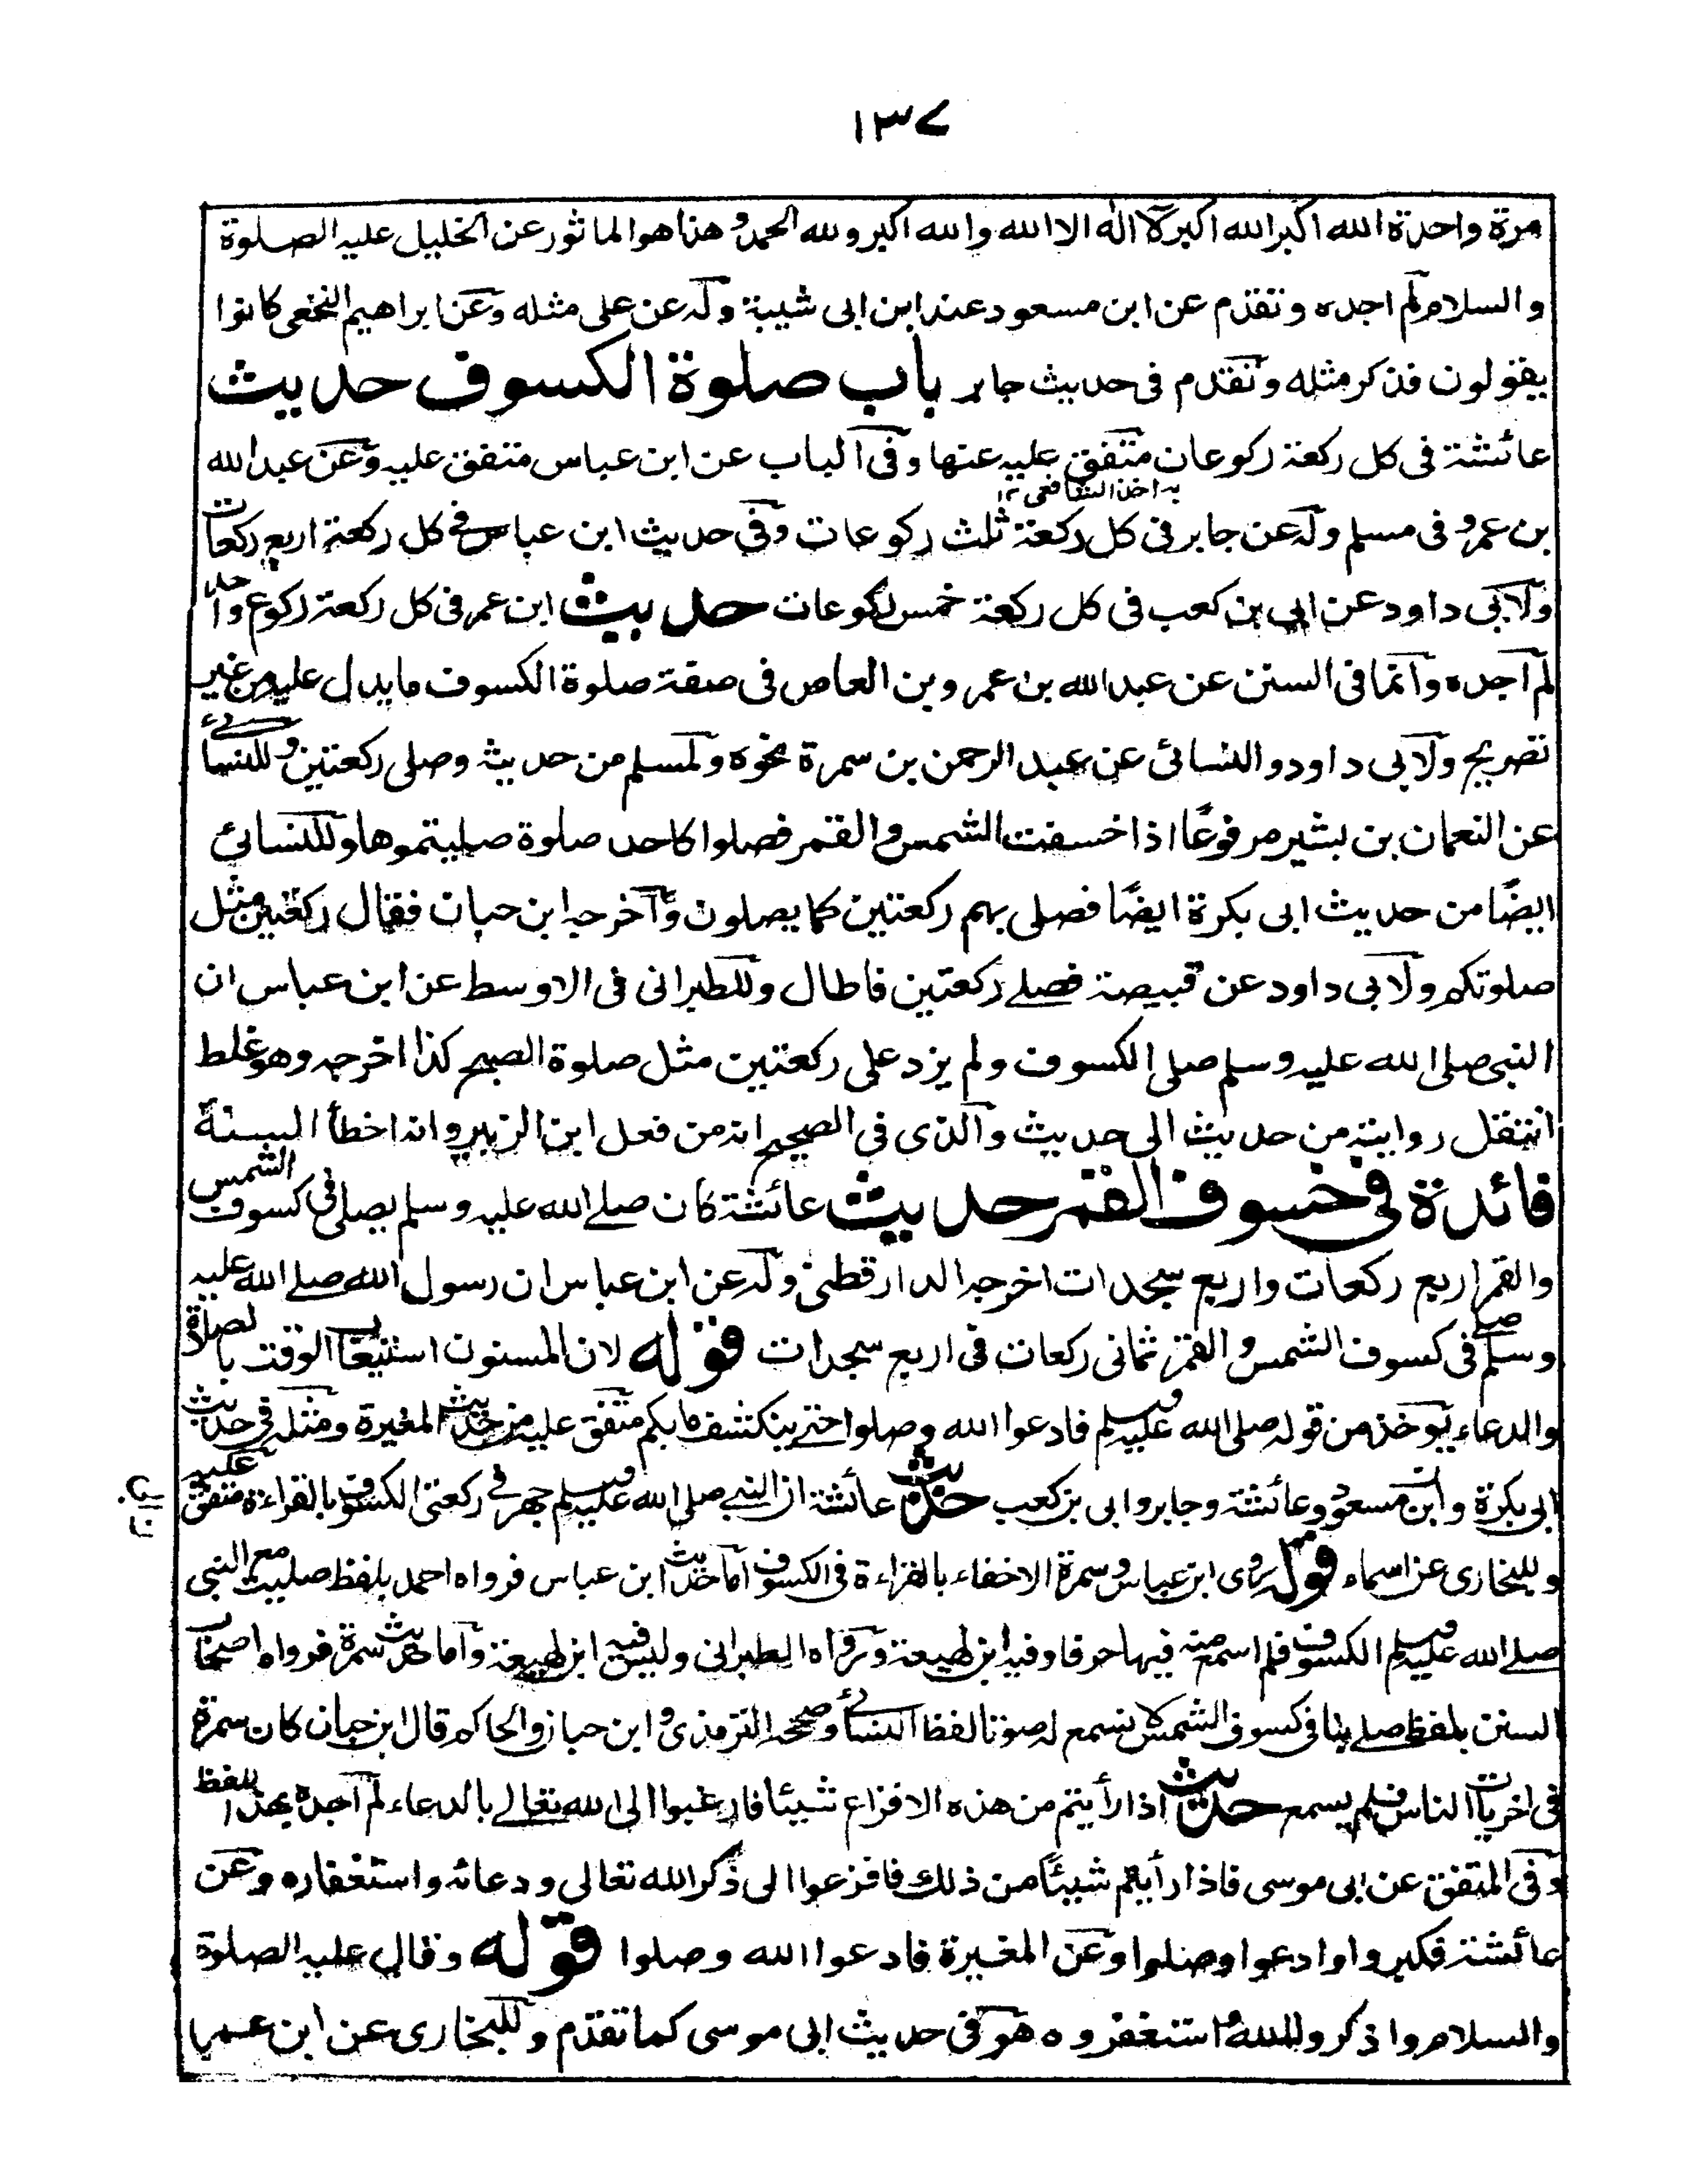 ١٣٧
مرة واحدة الله اكبر الله اكبر لا اله الا الله والله اكبر ولله الحمد و هذا هو الماثور عن الخليل عليه الصلوة
والسلام لم اجده وتقدم عن ابن مسعود عند ابن ابى شيبة وله عن على مثله وعن ابراهيم النخعى كانوا
يقولون فذكر مثله وتقدم فى حديث جابر باب صلوة الكسوف حديث
عائشة فى كل ركعة ركوعان متفق عليه عنها وفى الباب عن ابن عباس متفق عليه وعن عبد الله
به اخذ الشافعى ١٢
بن عمرو فى مسلم وله عن جابر فى كل ركعة ثلث ركوعات وفى حديث ابن عباس فى كل ركعة اربع ركعات
ولابى داود عن ابى بن كعب فى كل ركعة خمس ركوعات حديث ابن عمر فى كل ركعة ركوع واحد
لم اجده وانما فى السنن عن عبد الله بن عمر وبن العاص فى صفة صلوة الكسوف ما يدل عليه من غير
تصريح ولابى داود والنسائى عن عبد الرحمن بن سمرة نحوه ولمسلم من حديثه وصلى ركعتين وللنسائى
عن النعمان بن بشير مرفوعًا اذا خسفت الشمس والقمر فصلوا كاحد صلوة صليتموها وللنسائى
ايضًا من حديث ابى بكرة ايضًا فصلى بهم ركعتين كما يصلون وآخرجه ابن حبان فقال ركعتين مثل
صلوتكم ولابى داود عن قبيصة فصلے ركعتين فاطال وللطبرانى فى الاوسط عن ابن عباس ان
النبى صلى الله عليه وسلم صلى الكسوف ولم يزد على ركعتين مثل صلوة الصبح كذا اخرجه وهو غلط
انتقل روايته من حديث الى حديث والذى فى الصحيح انه من فعل ابن الزبير وانه اخطأ السنة
فائدة فى خسوف القمر حديث عائشة كان صلے الله عليه وسلم يصلى فى كسوف الشمس
والقمر اربع ركعات واربع سجدات اخرجه الدارقطنى وله عن ابن عباس ان رسول الله صلے الله عليه
وسلم صلے فى كسوف الشمس و القمر ثمانى ركعات فى اربع سجدات قوله لان المسنون استيعاب الوقت بالصلاة
والدعاء يوخذ من قوله صلى الله عليه وسلم فادعوا الله وصلوا حتے ينكشف ما بكم متفق عليه من حديث المغيرة ومثله فى حديث
ابى بكرة وابن مسعود وعائشة وجابر وابى بن كعب حديث عائشة ان النبے صلى الله عليه وسلم جهر فى ركعتى الكسوف بالقراءة متفق عليه
وللبخارى عن اسماء قوله روى ابن عباس وسمرة الاخفاء بالقراءة فى الكسوف اما حديث ابن عباس فرواه احمد بلفظ صليت مع النبى
صلے الله عليه وسلم الكسوف فلم اسمع منه فيها حرفا وفيه ابن لهيعة ورواه الطبرانى وليس فيه ابن لهيعة وآما حديث سمرة فرواه اصحاب
السنن بلفظ صلے بنا فى كسوف الشمس لا نسمع له صوتا لفظ النسائى وصححه الترمذى و ابن حبان والحاكم قال ابن حبان كان سمرة
فى اخريات الناس فلم يسمع حديث اذا رأيتم من هذه الافزاع شيئا فارغبوا الى الله تعالے بالدعاء لم آجده بهذا اللفظ
وفى المتفق عن ابى موسى فاذا رأيتم شيئًا من ذلك فافزعوا الى ذكر الله تعالى ودعائه واستغفاره وعن
عائشة فكبروا وادعوا وصلوا وعن المغيرة فادعوا الله وصلوا قوله وقال عليه الصلوة
والسلام واذكروا الله و استغفروه هو فى حديث ابى موسى كما تقدم وللبخارى عن ابن عمر